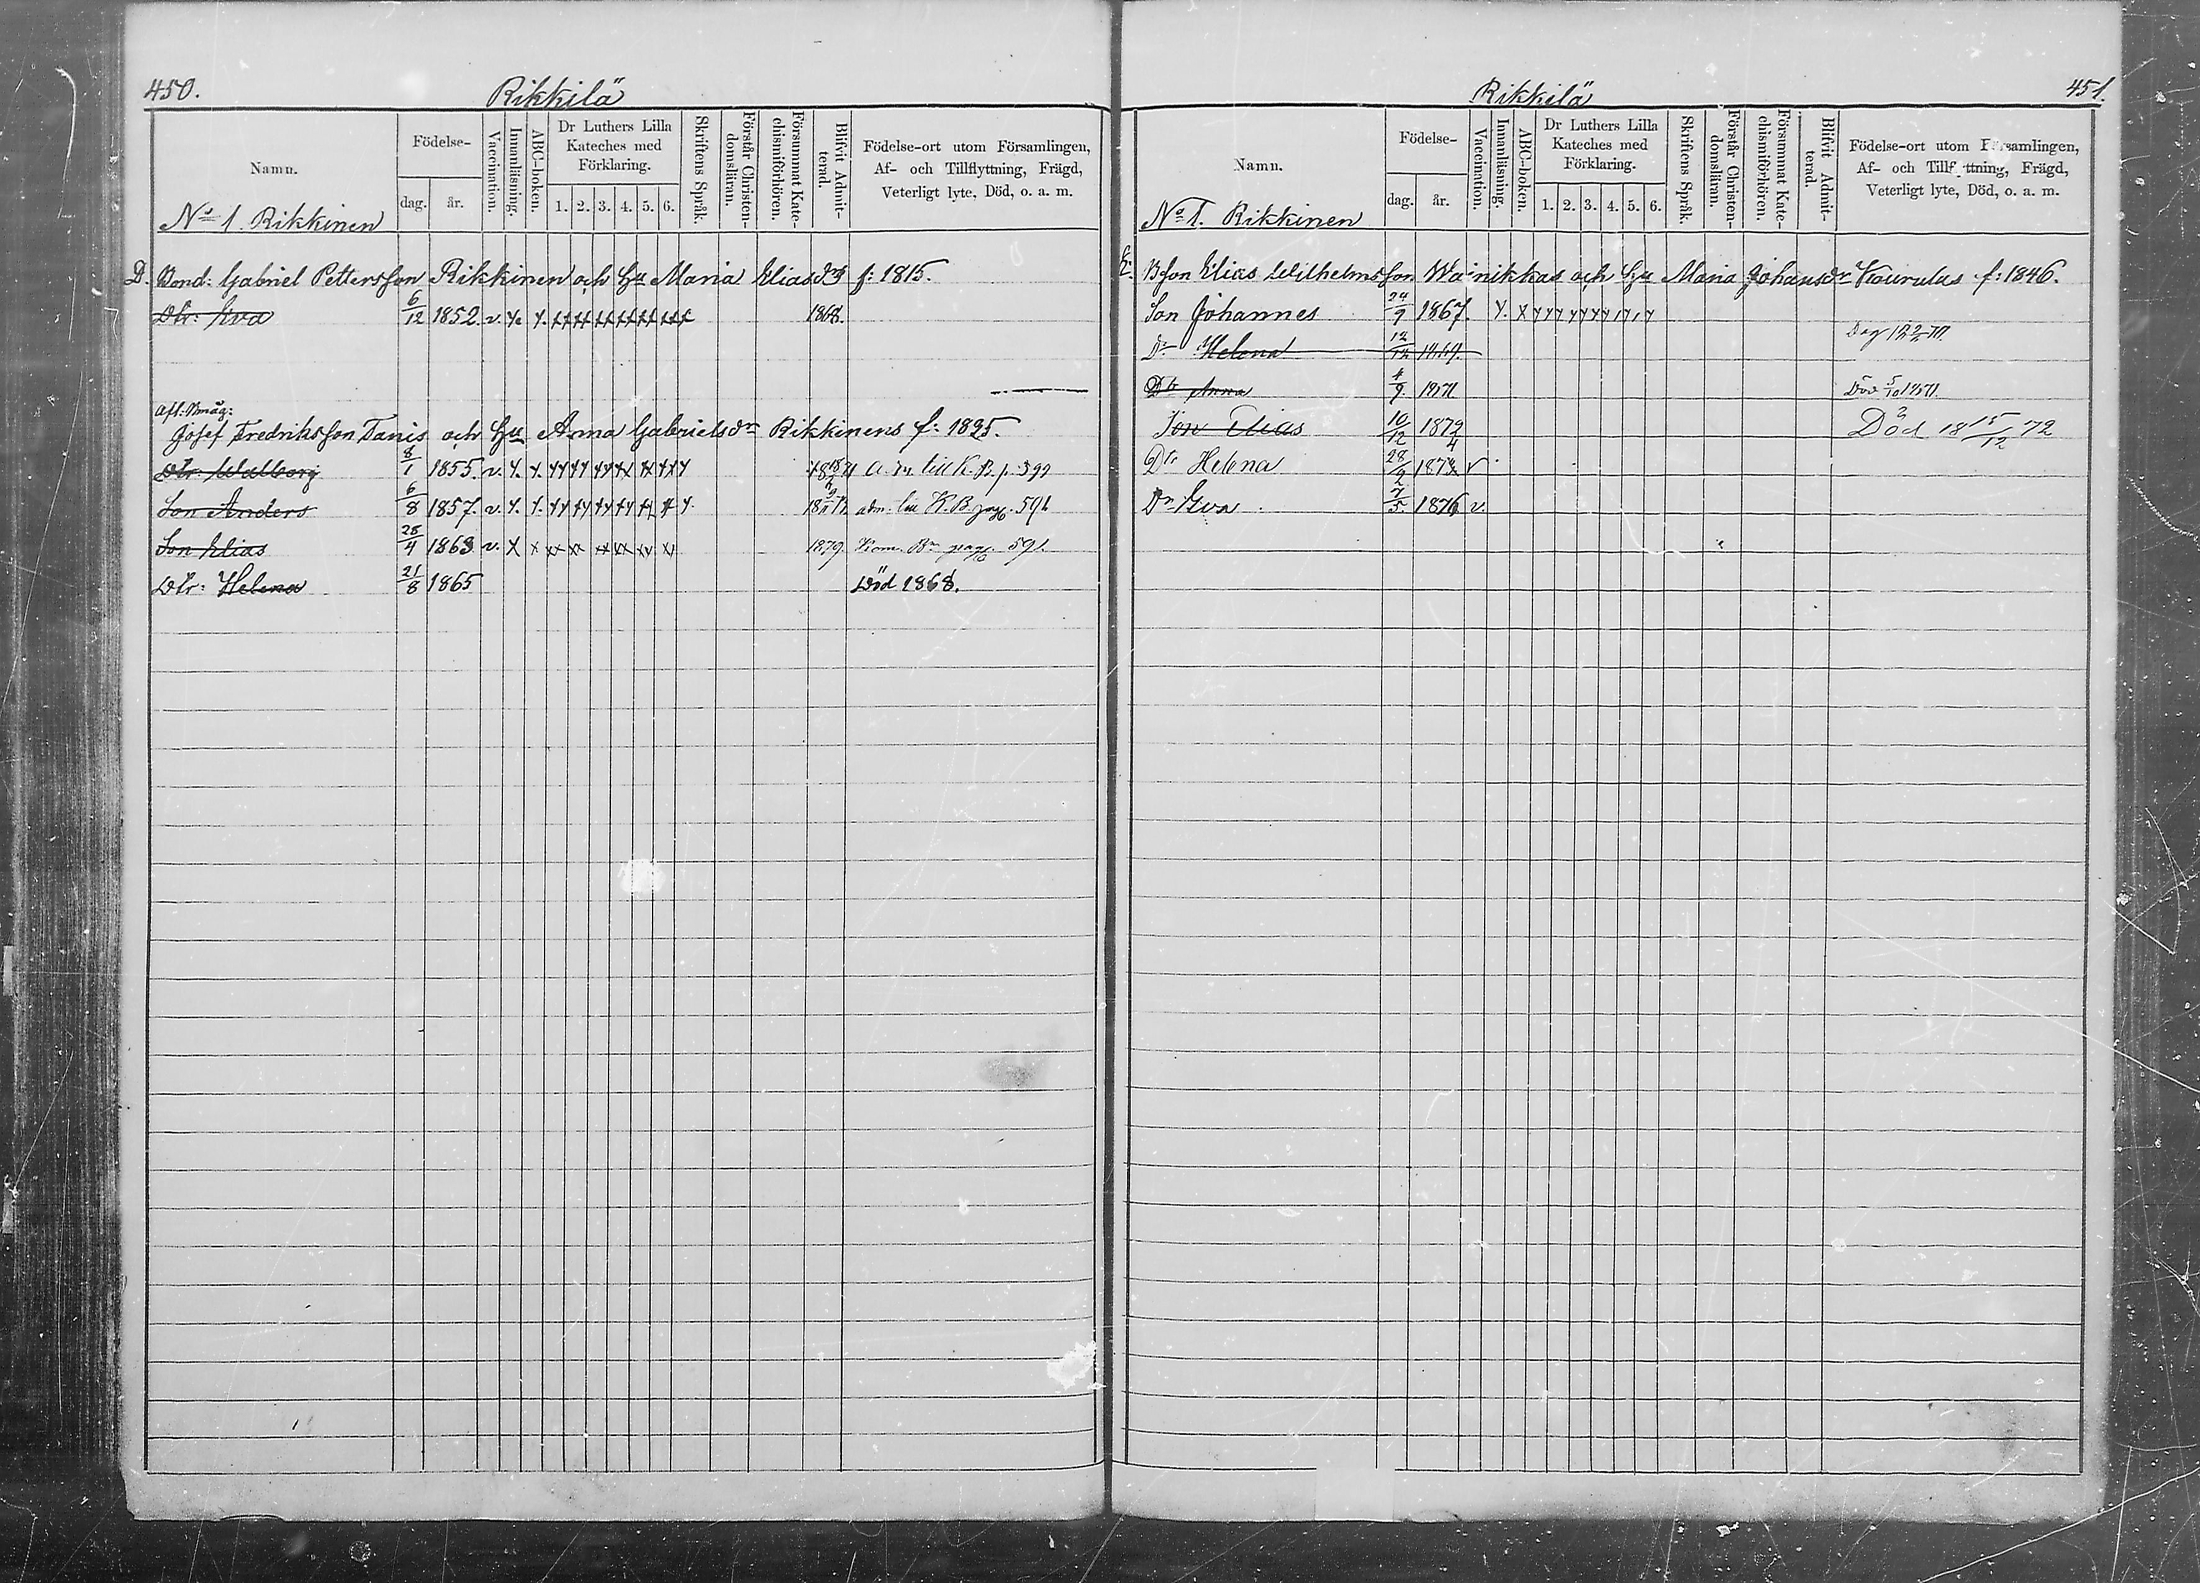 450.
Rikkilä
Namn.
Födelse-
dag.
år.
Vaccination.
Innanläsning.
ABC-boken.
Dr Luthers Lilla
Kateches med
Förklaring.
1. 2. 3. 4. 5. 6.
Skriftens Språk.
Förstår Christen-
domsläran.
Försummat Kate-
chismiförhören.
Blifvit Admit-
terad.
Födelse-ort utom Församlingen,
Af- och Tillflyttning, Frägd,
Veterligt lyte, Död, o. a. m.
No 1. Rikkinen
D. Bond: Gabriel Pettersson Rikkinen och Hu Maria Eliasdr f: 1815.
Dtr: Eva 6/12 1852. v. 1868.
Afl: Måg:
Josef Fredriksson Tanis och Hu Anna Gabrielsdr Rikkinens f: 1825.
Dtr: Walborg 8/1 1855. v. till K. B. p. 399
Son Anders 6/8 1857. v. adm. till K. B. pag. 591
Son Elias 28/4 1863. v. 1879. Kom. Br pag. 591.
Dtr: Helena 21/8 1865 Död 1868.
451.
Rikkilä
Namn.
Födelse-
dag.
år.
Vaccination.
Innanläsning.
ABC-boken.
Dr Luthers Lilla
Kateches med
Förklaring.
1. 2. 3. 4. 5. 6.
Skriftens Språk.
Förstår Christen-
domsläran.
Försummat Kate-
chismiförhören.
Blifvit Admit-
terad.
Födelse-ort utom Församlingen,
Af- och Tillflyttning, Frägd,
Veterligt lyte, Död, o. a. m.
No 1. Rikkinen
E. Bson Elias Wilhelmsson Wainikkas och Hu Maria Johansdr Kourulas f: 1846.
Son Johannes 24/9 1867.
Dr Helena 12/12 1869.
Dtr Anna 4/9 1871 Död 5/10 1871.
Son Elias 10/12 1872 Död 18 15/12 72
Dtr Helena 28/2 v
Dr Eva 7/5 1876 v.